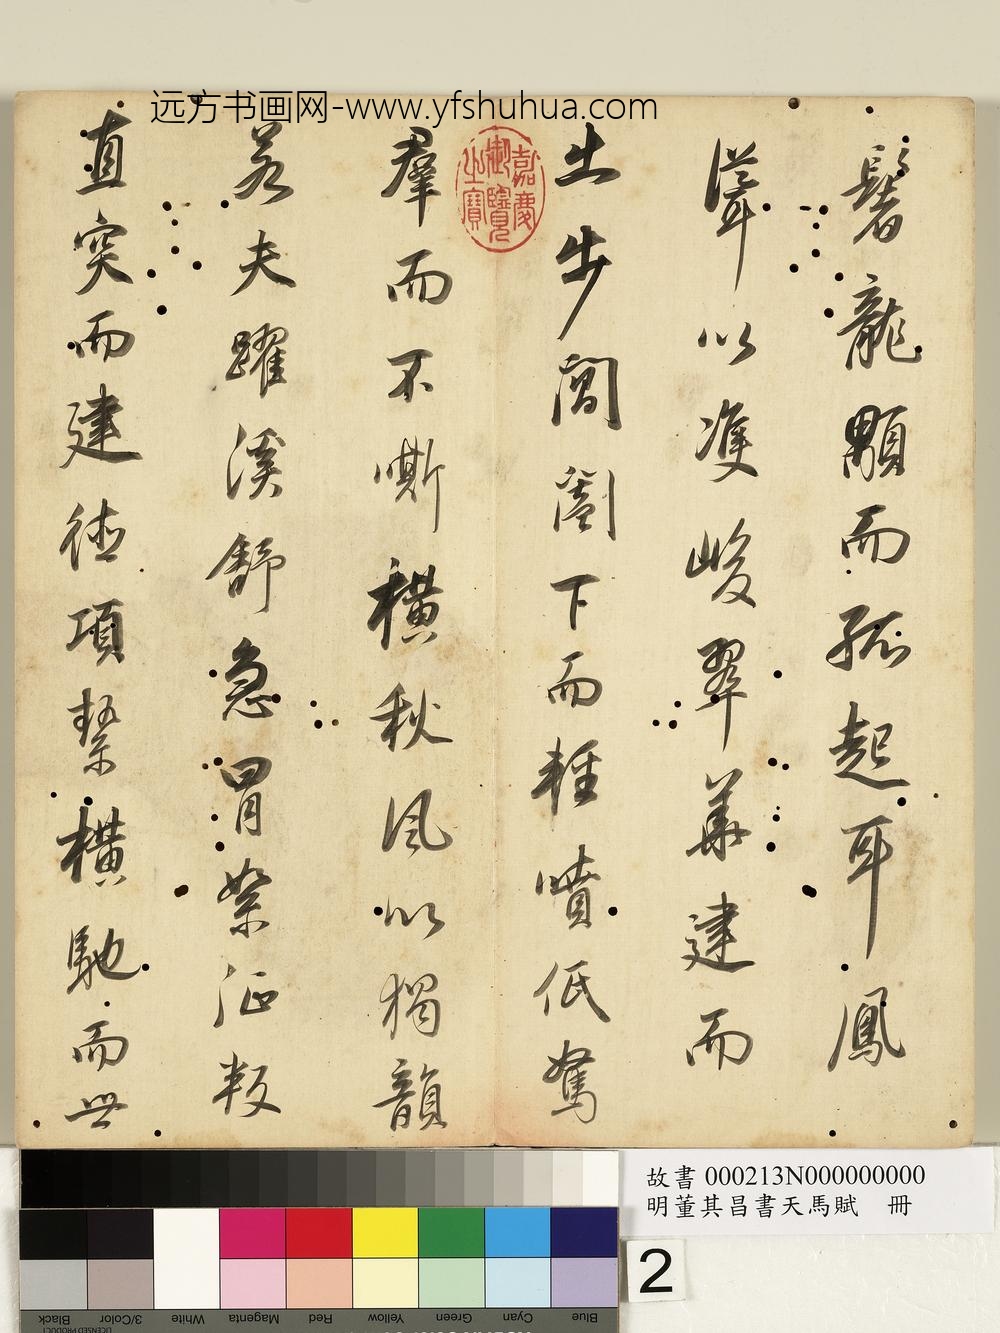 远方书画网-www.yfshuhua.com
鬐龍顒而孤起耳鳳
聳以雙峻翠華建而
出步閶闔下而輕噴低駑
羣而不嘶橫秋風以獨韻
若夫躍溪舒急冒絮征叛
直突而建德項縶橫馳而世
嘉慶御覽之寶
故書 000213N000000000
明董其昌書天馬賦 冊
2
Blue Cyan Green Yellow Red Magenta White 3/Color Black